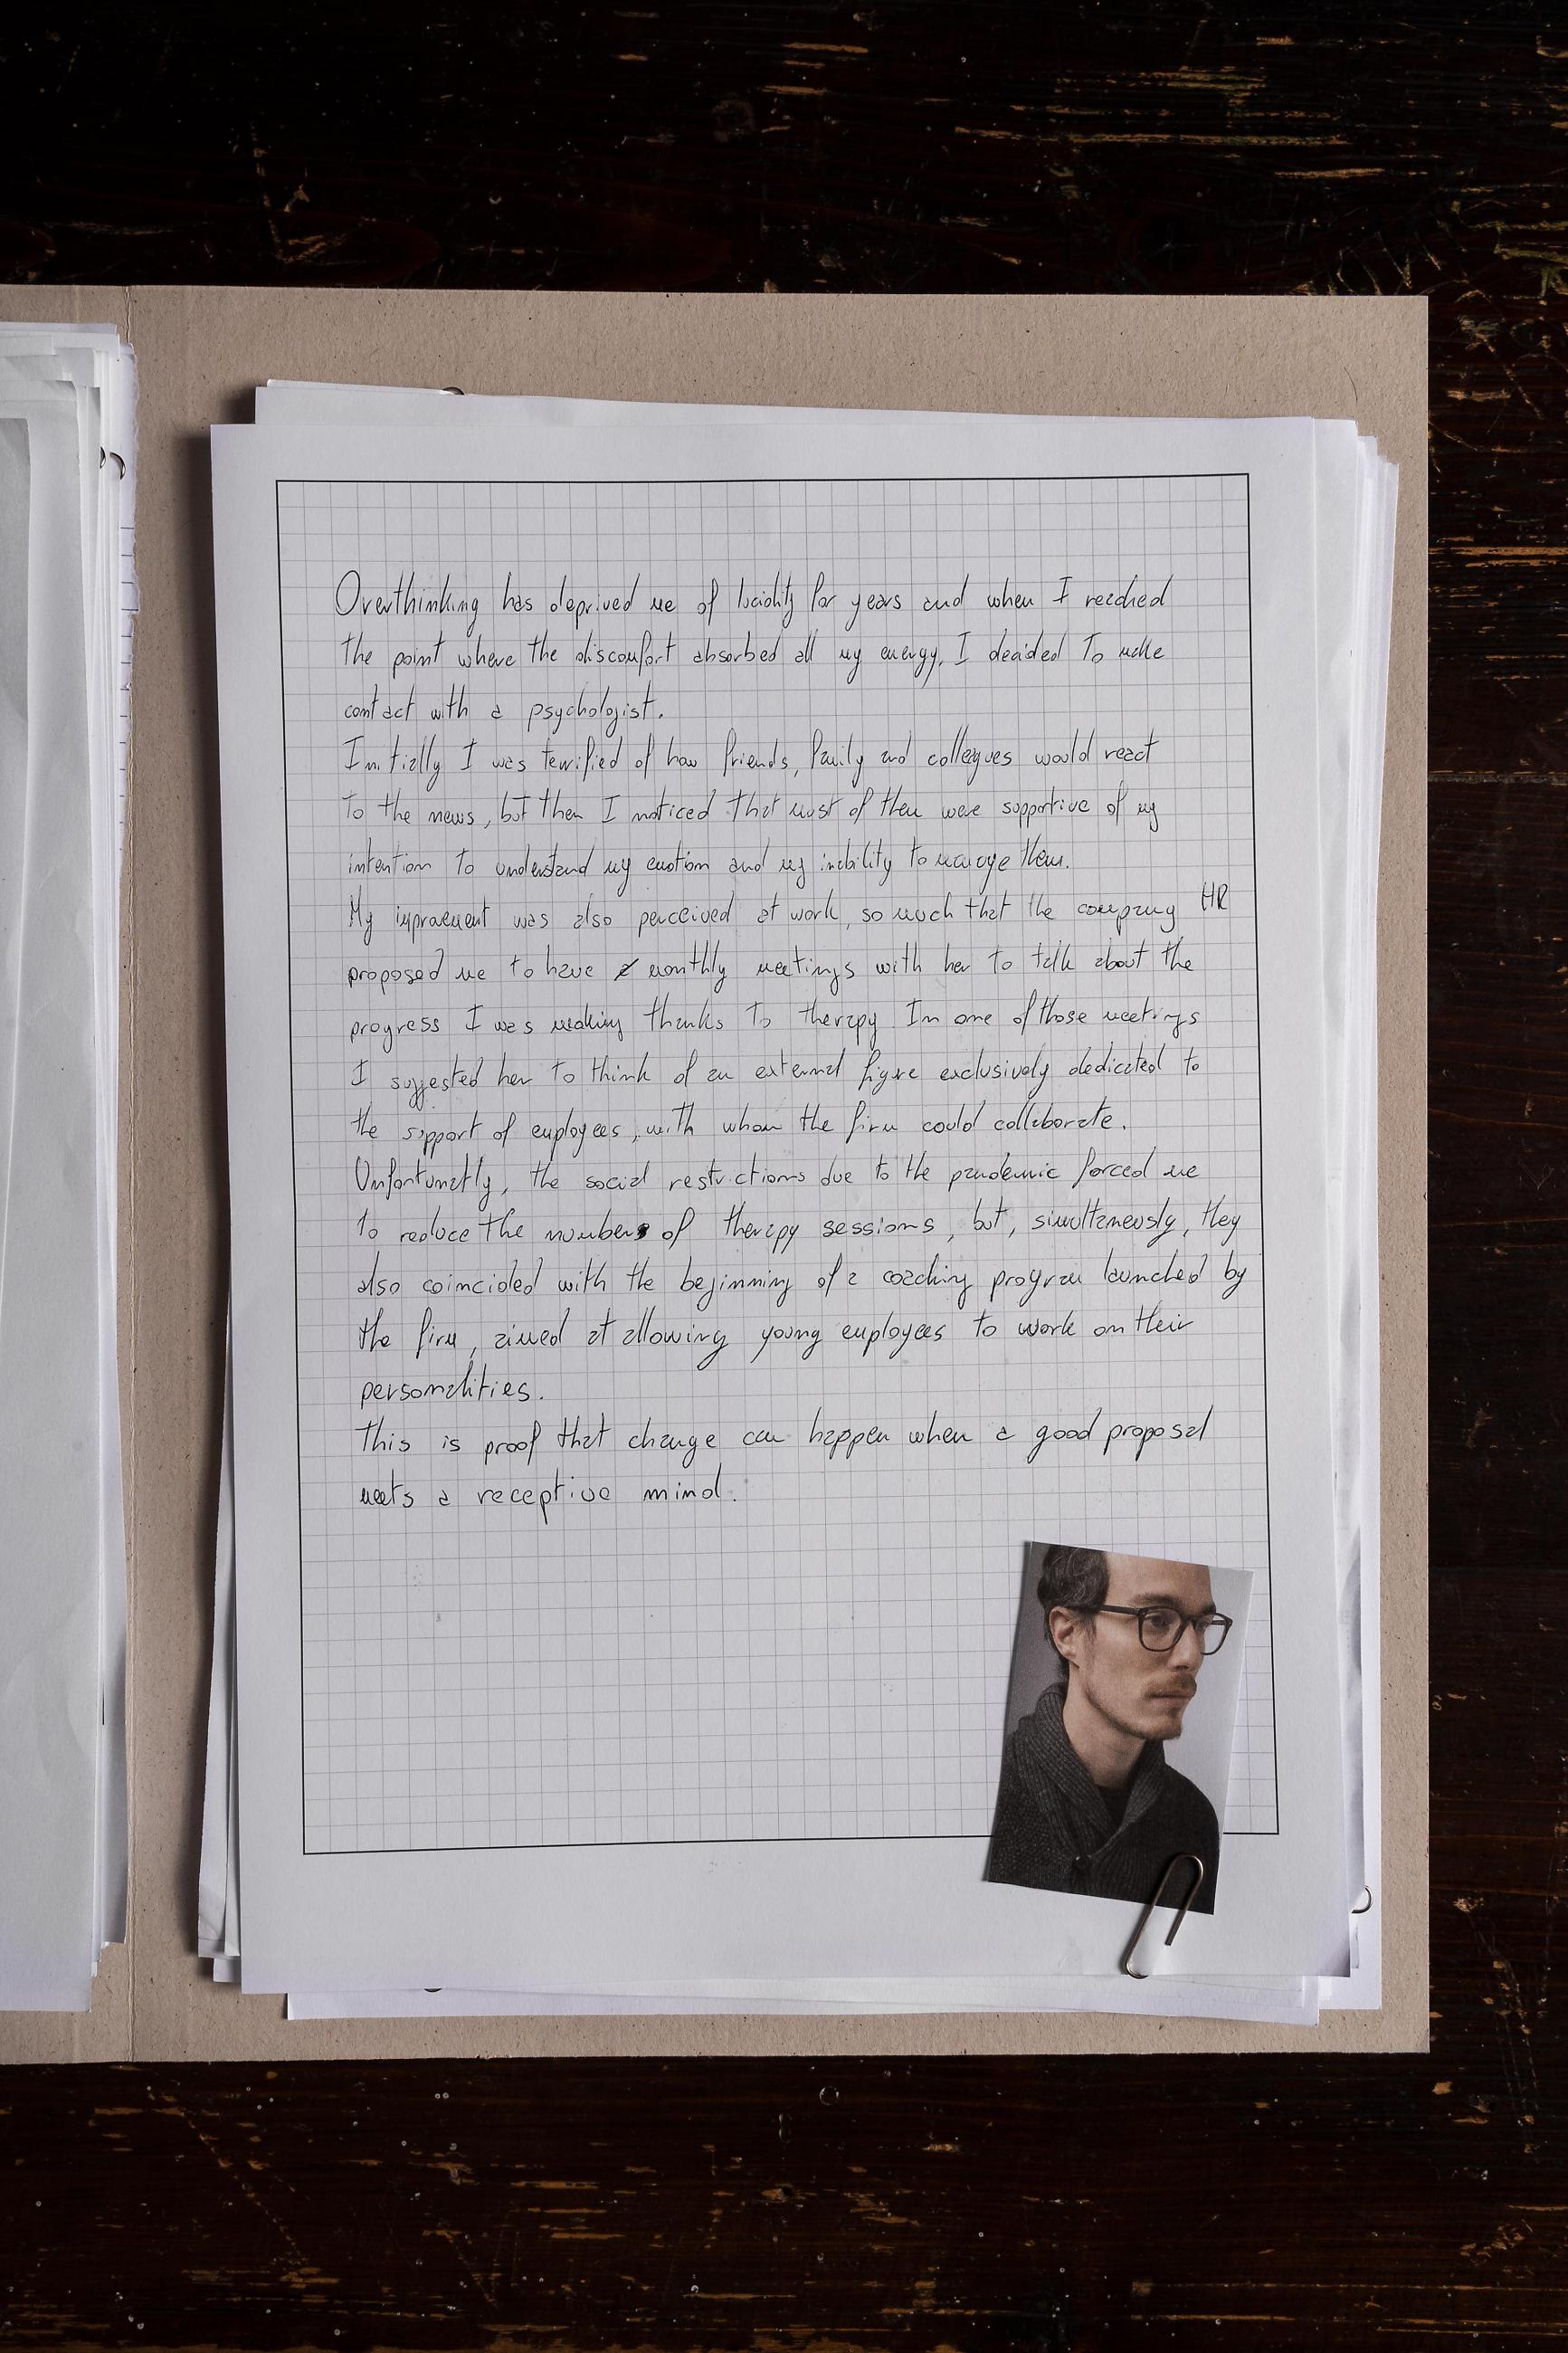 Overthinking has deprived me of lucidity for years and when I reached
the point where the discomfort absorbed all my energy, I decided to make
contact with a psychologist.
Initially I was terrified of how friends, family and colleagues would react
to the news, but then I noticed that most of them were supportive of my
intention to understand my emotion and my inability to manage them.
My improvement was also perceived at work, so much that the company HR
proposed me to have monthly meetings with her to talk about the
progress I was making thanks to therapy. In one of those meetings
I suggested her to think of an external figure exclusively dedicated to
the support of employees, with whom the firm could collaborate.
Unfortunatly, the social restrictions due to the pandemic forced me
to reduce the number of therapy sessions, but, simultaneously, they
also coincided with the beginning of a coaching program launched by
the firm, aimed at allowing young employees to work on their
personalities.
This is proof that change can happen when a good proposal
meets a receptive mind.